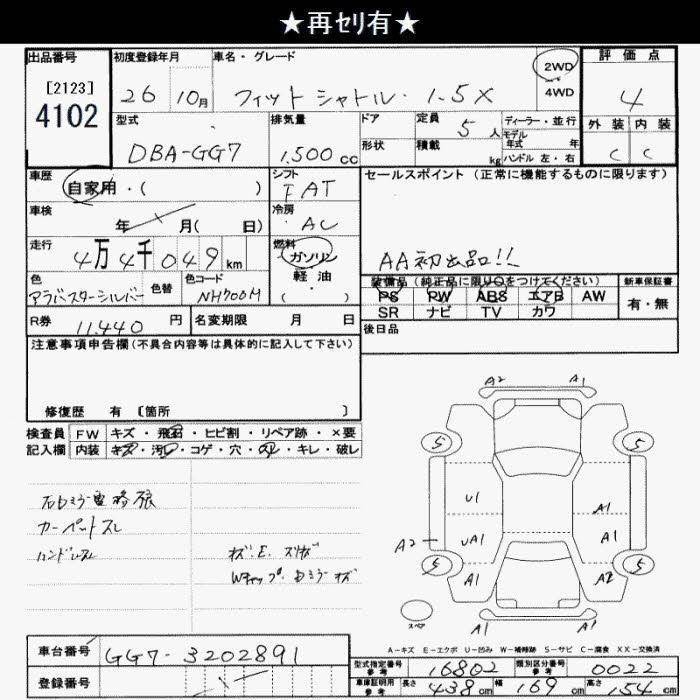 ★再ｾﾘ有★
出品番号 初度登録年月 車名・グレード 2WD 4WD 評価点
[2123]
4102
26 10月 フィットシャトル・1.5X 4
型式 排気量 ドア 定員 5人 ディーラー・並行 外装 内装
モデル
年式 年
形状 積載 kg ハンドル 左・右
DBA-GG7 1,500cc C C
車歴 シフト セールスポイント（正常に機能するものに限ります）
自家用・( ) FAT
車検 冷房
年 月( 日) AC
走行 燃料
4万4千049km ガソリン
軽油
・
( )
AA初出品!!
色 色替 色コード 装備品（純正品に限り○をつけてください） 新車保証書
アラバスターシルバー NH700M PS PW ABS エアB AW 有・無
SR ナビ TV カワ
R券 11,440円 名変期限 月 日 後日品
注意事項申告欄（不具合内容等は具体的に記入して下さい）
修復歴 有 〔箇所 〕
検査員 FW キズ・飛石・ヒビ割・リペア跡・×要
記入欄 内装 キズ・汚レ・コゲ・穴・スレ・キレ・破レ
カーペットスレ
ハンドルスレ
A2 A1
5 5
U1 A1
A2 UA1 A1
5 5
A1 A2
スペア A1 A1
A-キズ E-エクボ U-凹み W-補修跡 S-サビ C-腐食 XX-交換済
車台番号 GG7-3202891
登録番号
型式指定番号 参考 16802 類別区分番号 参考 0022
車庫証明用 参考 長さ 438cm 幅 169cm 高さ 154cm